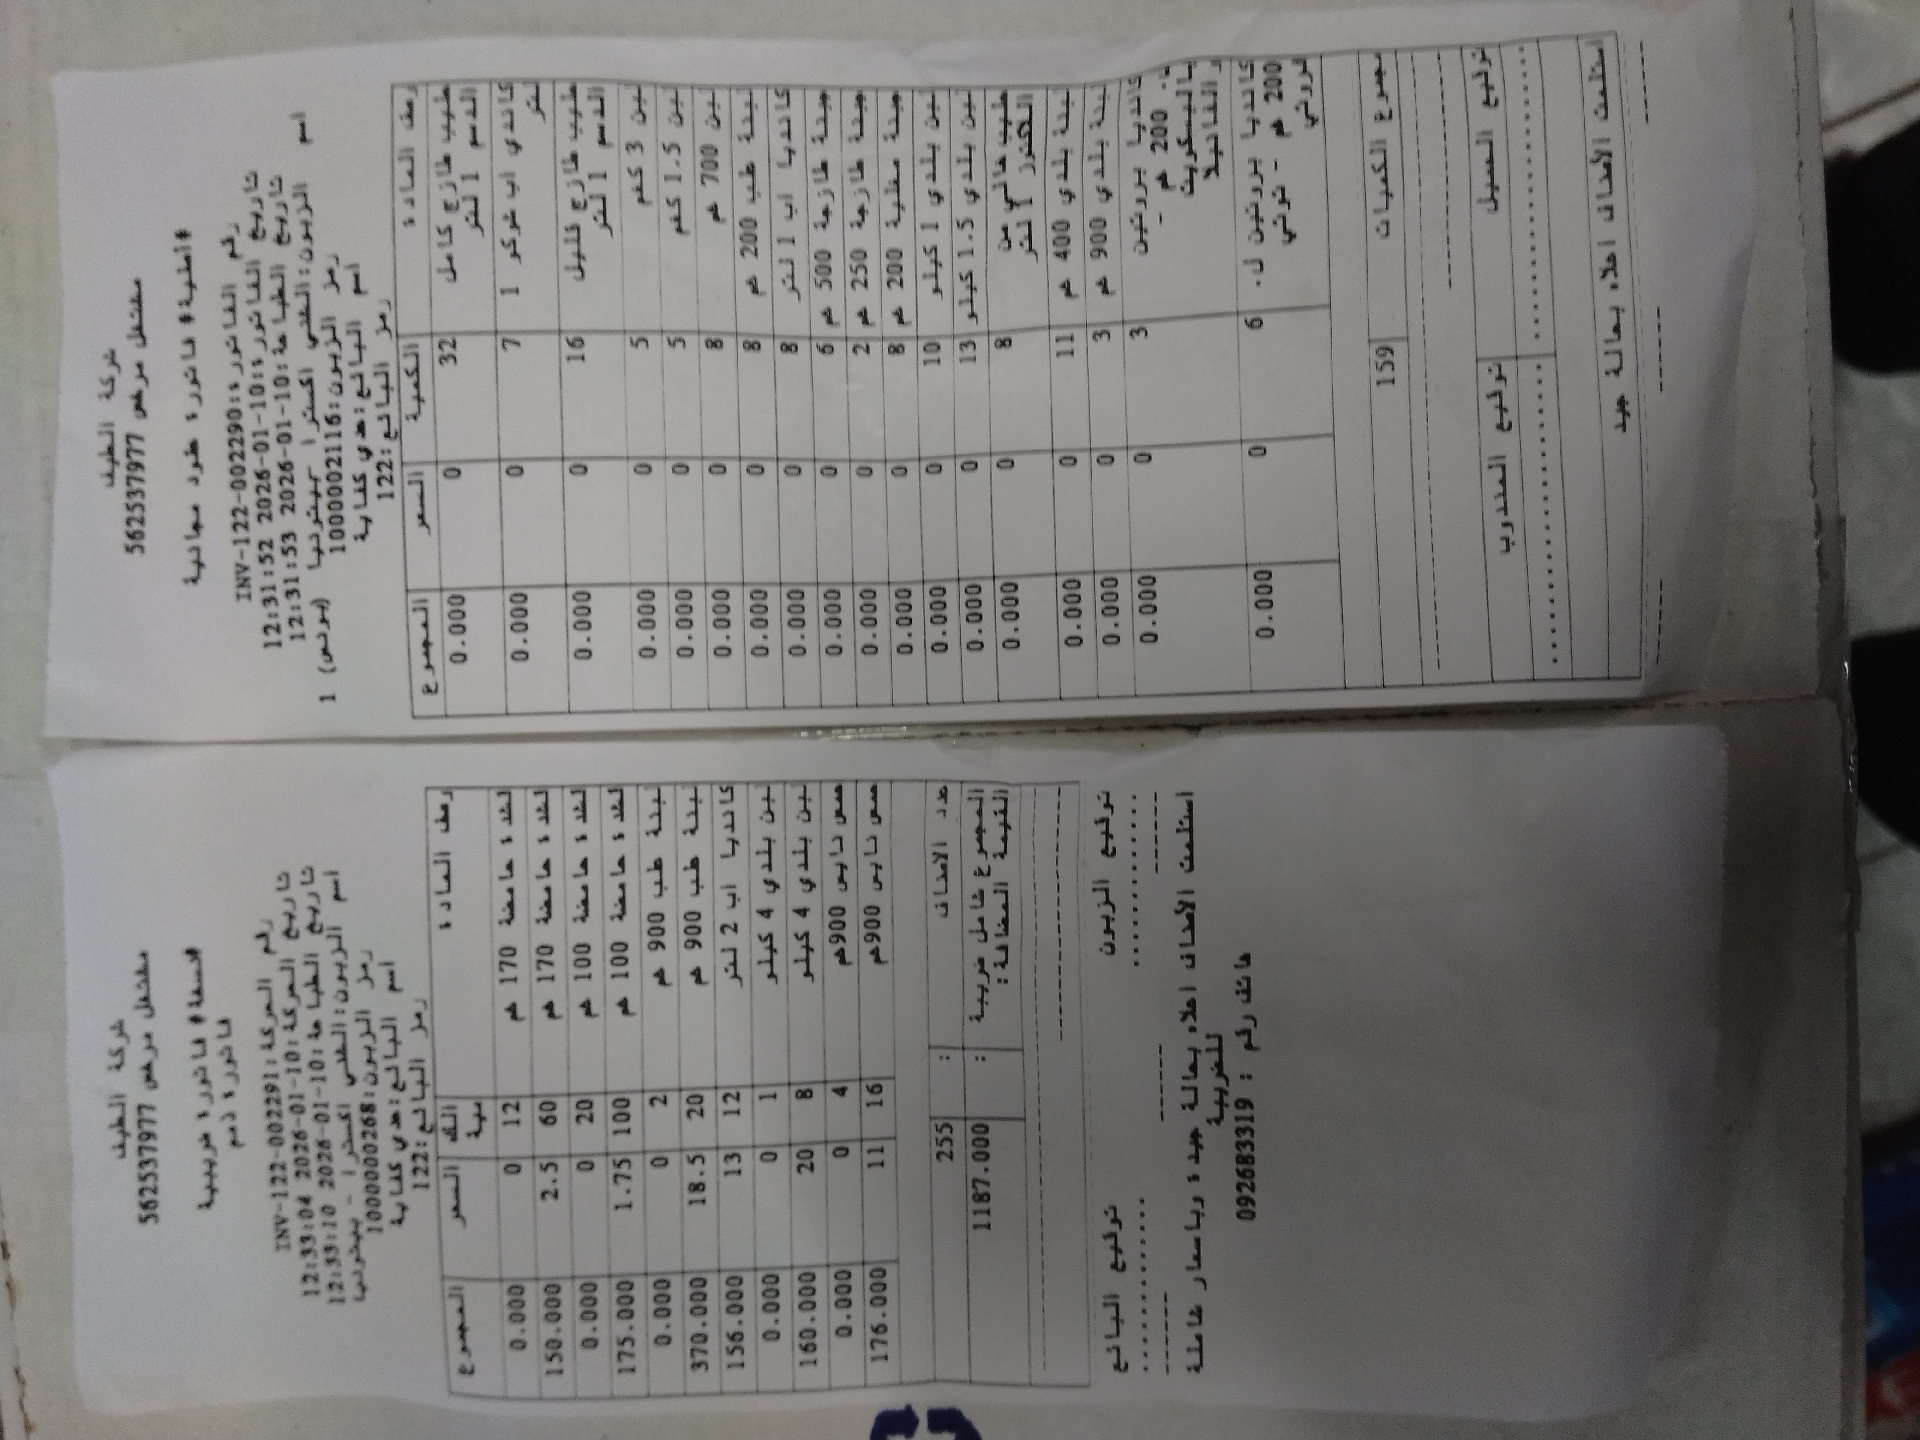 شركة الطيف
مشتغل مرخص 562537977
#أصلية# فاتورة طرد مجانية
رقم الفاتورة: INV-122-002290
تاريخ الفاتورة: 2026-01-10 12:31:52
تاريخ الطباعة: 2026-01-10 12:31:53
اسم الزبون: اكسترا بيتونيا (بونص) 1
رمز الزبون: 1000002116
اسم البائع: عدي كفاية
رمز البائع: 122
وصف المادة الكمية السعر المجموع
حليب طازج كامل الدسم 1 لتر 32 0 0.000
كاندي اب شوكو 1 لتر 7 0 0.000
حليب طازج قليل الدسم 1 لتر 16 0 0.000
لبن 3 كغم 5 0 0.000
لبن 1.5 كغم 5 0 0.000
لبن 700 غم 8 0 0.000
لبنة علب 200 غم 8 0 0.000
كانديا اب 1 لتر 8 0 0.000
جبنة طازجة 500 غم 6 0 0.000
جبنة طازجة 250 غم 2 0 0.000
جبنة مغلية 200 غم 8 0 0.000
لبن بلدي 1 كيلو 10 0 0.000
لبن بلدي 1.5 كيلو 13 0 0.000
حليب خالي من اللاكتوز 1 لتر 8 0 0.000
لبنة بلدي 400 غم 11 0 0.000
لبنة بلدي 900 غم 3 0 0.000
كانديا بروتين 200 غم - بالبسكويت والفانيلا 3 0 0.000
كانديا بروتين ل. 200 غم - توتي فروتي 6 0 0.000
مجموع الكميات 159
توقيع العميل توقيع المندوب
استلمت الأصناف اعلاه بحالة جيد
شركة الطيف
مشتغل مرخص 562537977
#نسخة# فاتورة ضريبية
فاتورة ذمم
رقم الحركة: INV-122-002291
تاريخ الحركة: 2026-01-10 12:33:04
تاريخ الطباعة: 2026-01-10 12:33:10
اسم الزبون: اكسترا - بيتونيا
رمز الزبون: 1000000268
اسم البائع: عدي كفاية
رمز البائع: 122
وصف المادة الكمية السعر المجموع
قشدة حامضة 170 غم 12 0 0.000
قشدة حامضة 170 غم 60 2.5 150.000
قشدة حامضة 100 غم 20 0 0.000
قشدة حامضة 100 غم 100 1.75 175.000
لبنة علب 900 غم 2 0 0.000
لبنة علب 900 غم 20 18.5 370.000
كانديا اب 2 لتر 12 13 156.000
لبن بلدي 4 كيلو 1 0 0.000
لبن بلدي 4 كيلو 8 20 160.000
حمص نايس 900غم 4 0 0.000
حمص نايس 900غم 16 11 176.000
عدد الاصناف : 255
المجموع شامل ضريبة القيمة المضافة: : 1187.000
توقيع الزبون توقيع البائع
استلمت الأصناف اعلاه بحالة جيدة وباسعار شاملة للضريبة
هاتف رقم : 092683319